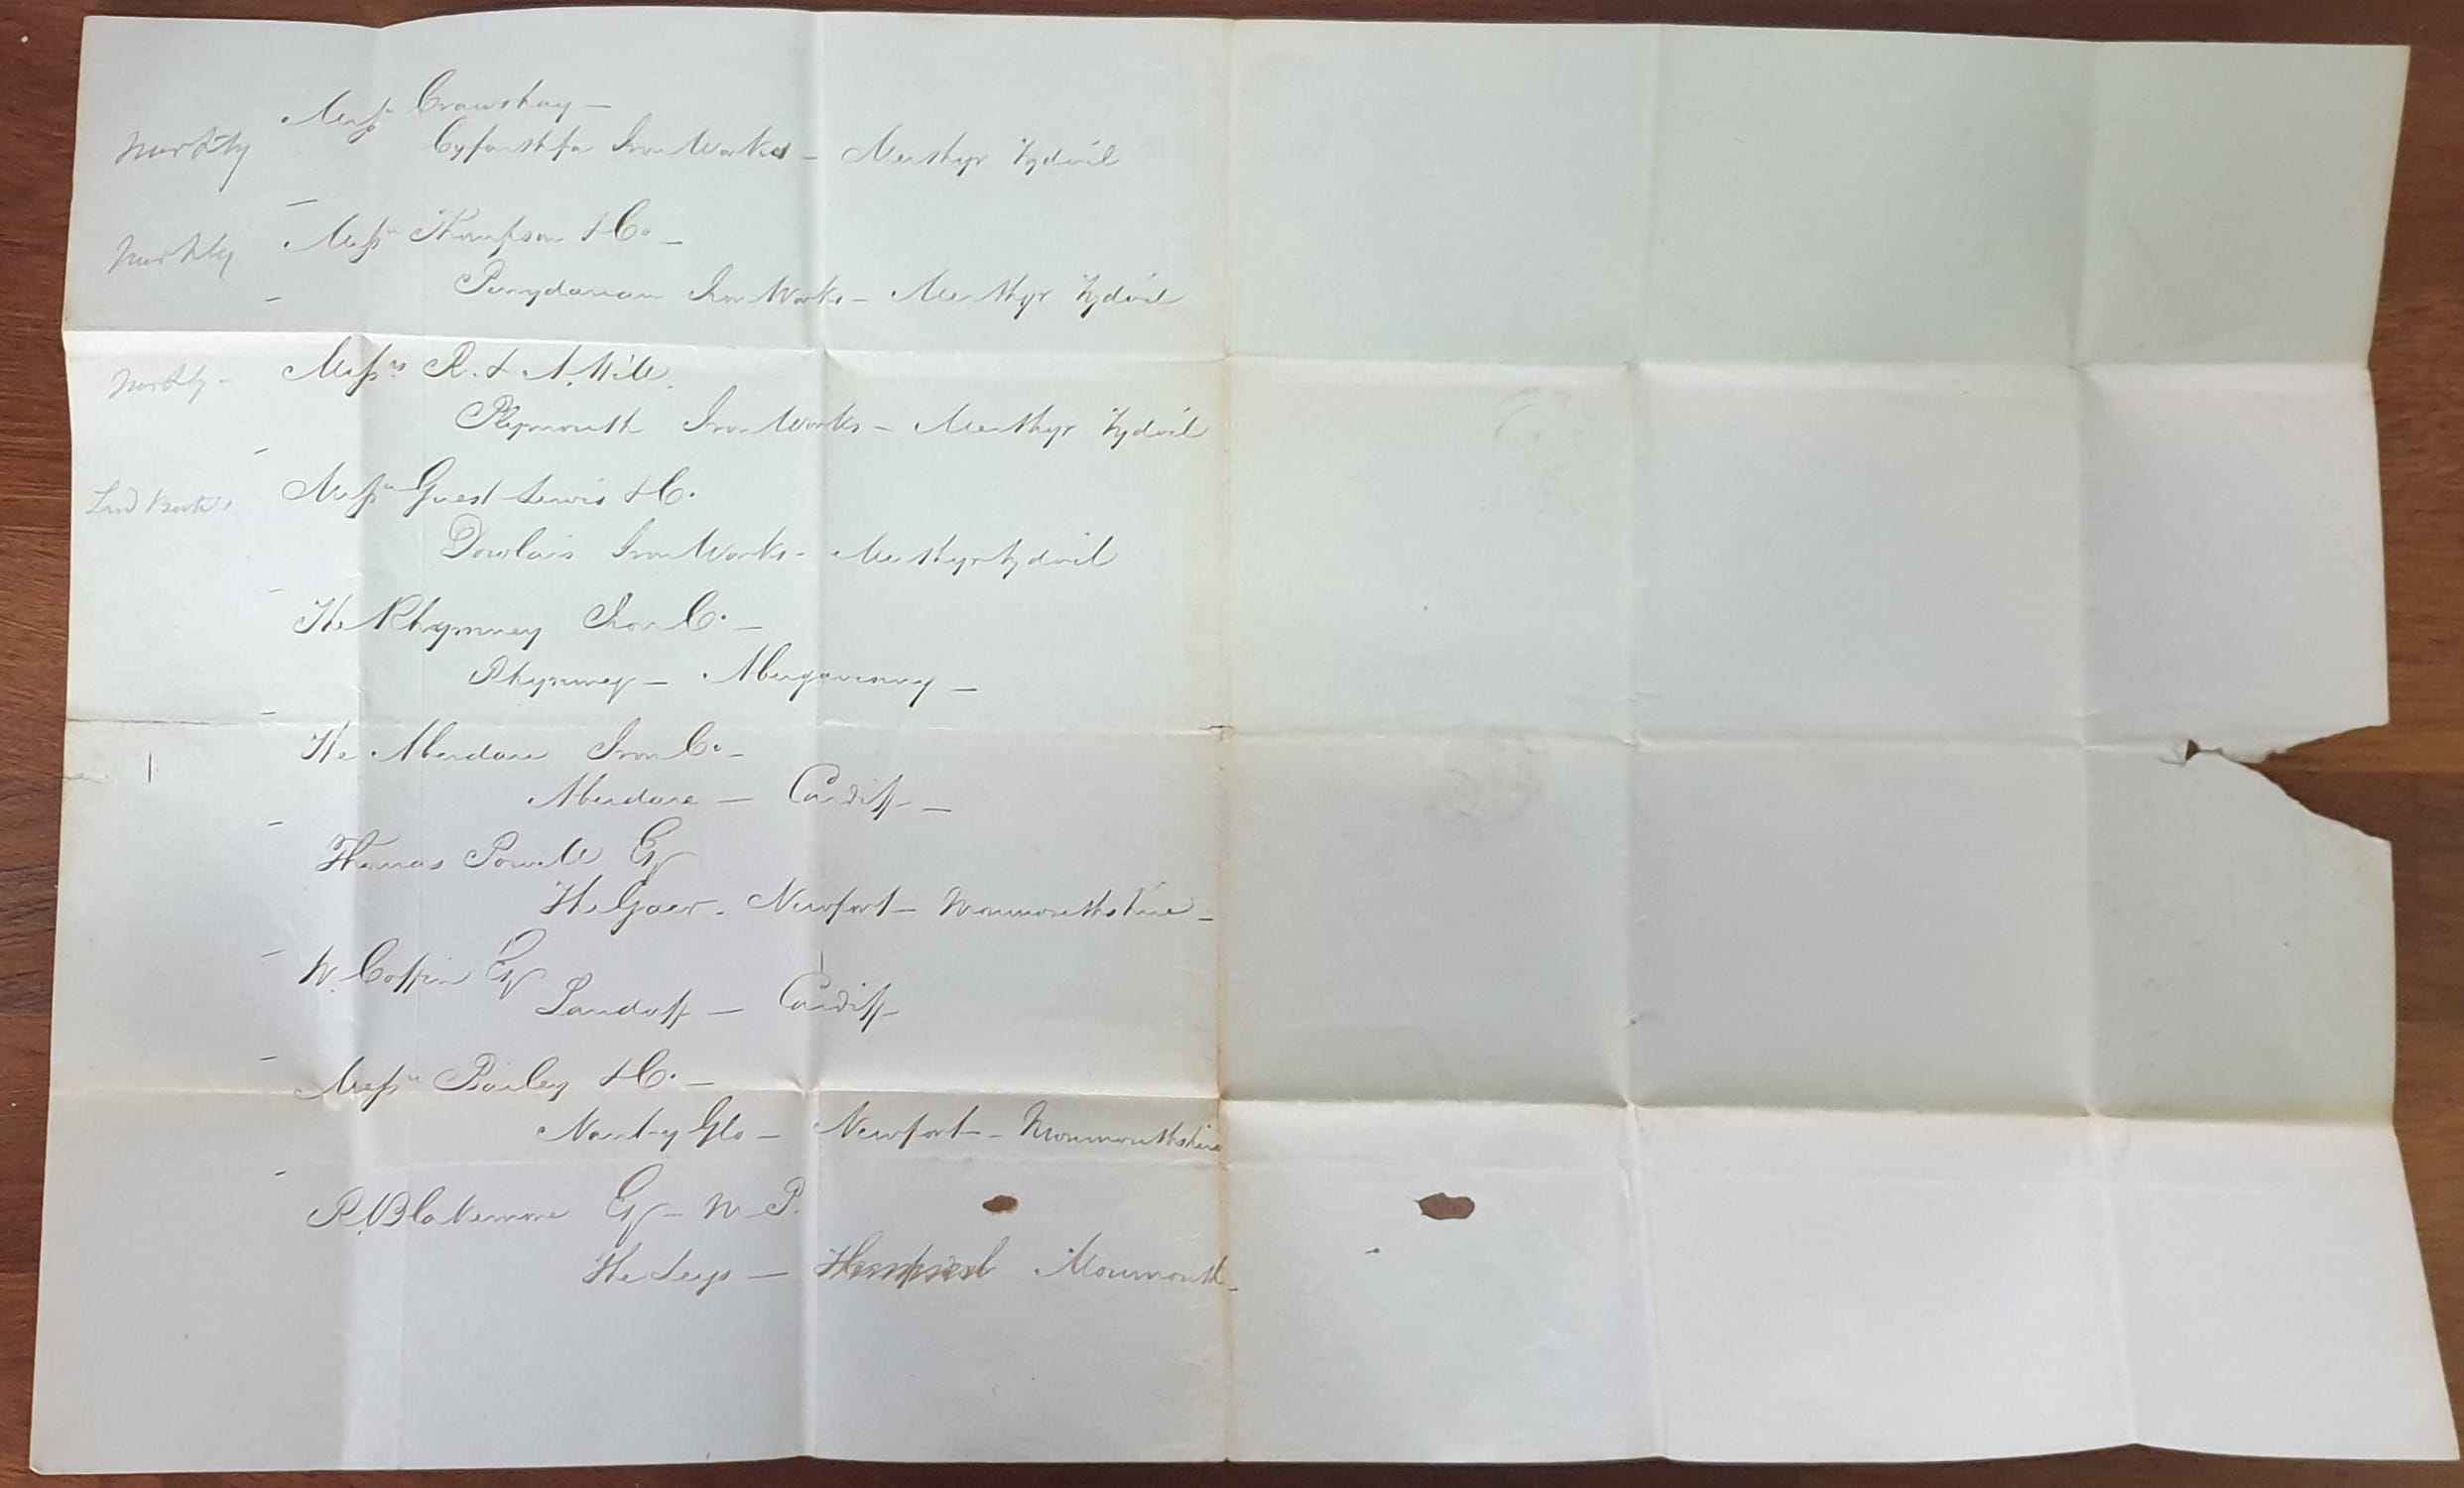 Messrs Crawshay –
Cyfarthfa Iron Works – Merthyr Tydvil
Messrs Thompson & Co –
Penydarran Iron Works – Merthyr Tydvil
Messrs R. & A. Hill.
Plymouth Iron Works – Merthyr Tydvil
Messrs Guest Lewis & Co.
Dowlais Iron Works – Merthyr Tydvil
The Rhymney Iron Co. –
Rhymney – Abergavenny –
The Aberdare Iron Co –
Aberdare – Cardiff –
Thomas Powell Esq
The Gaer. Newport – Monmouthshire –
W. Coffin Esq
Landaff – Cardiff
Messrs Bailey & Co. –
Nant-y Glo – Newport – Monmouthshire
R. Blakemore Esq – M.P.
The Leys – Monmouth –